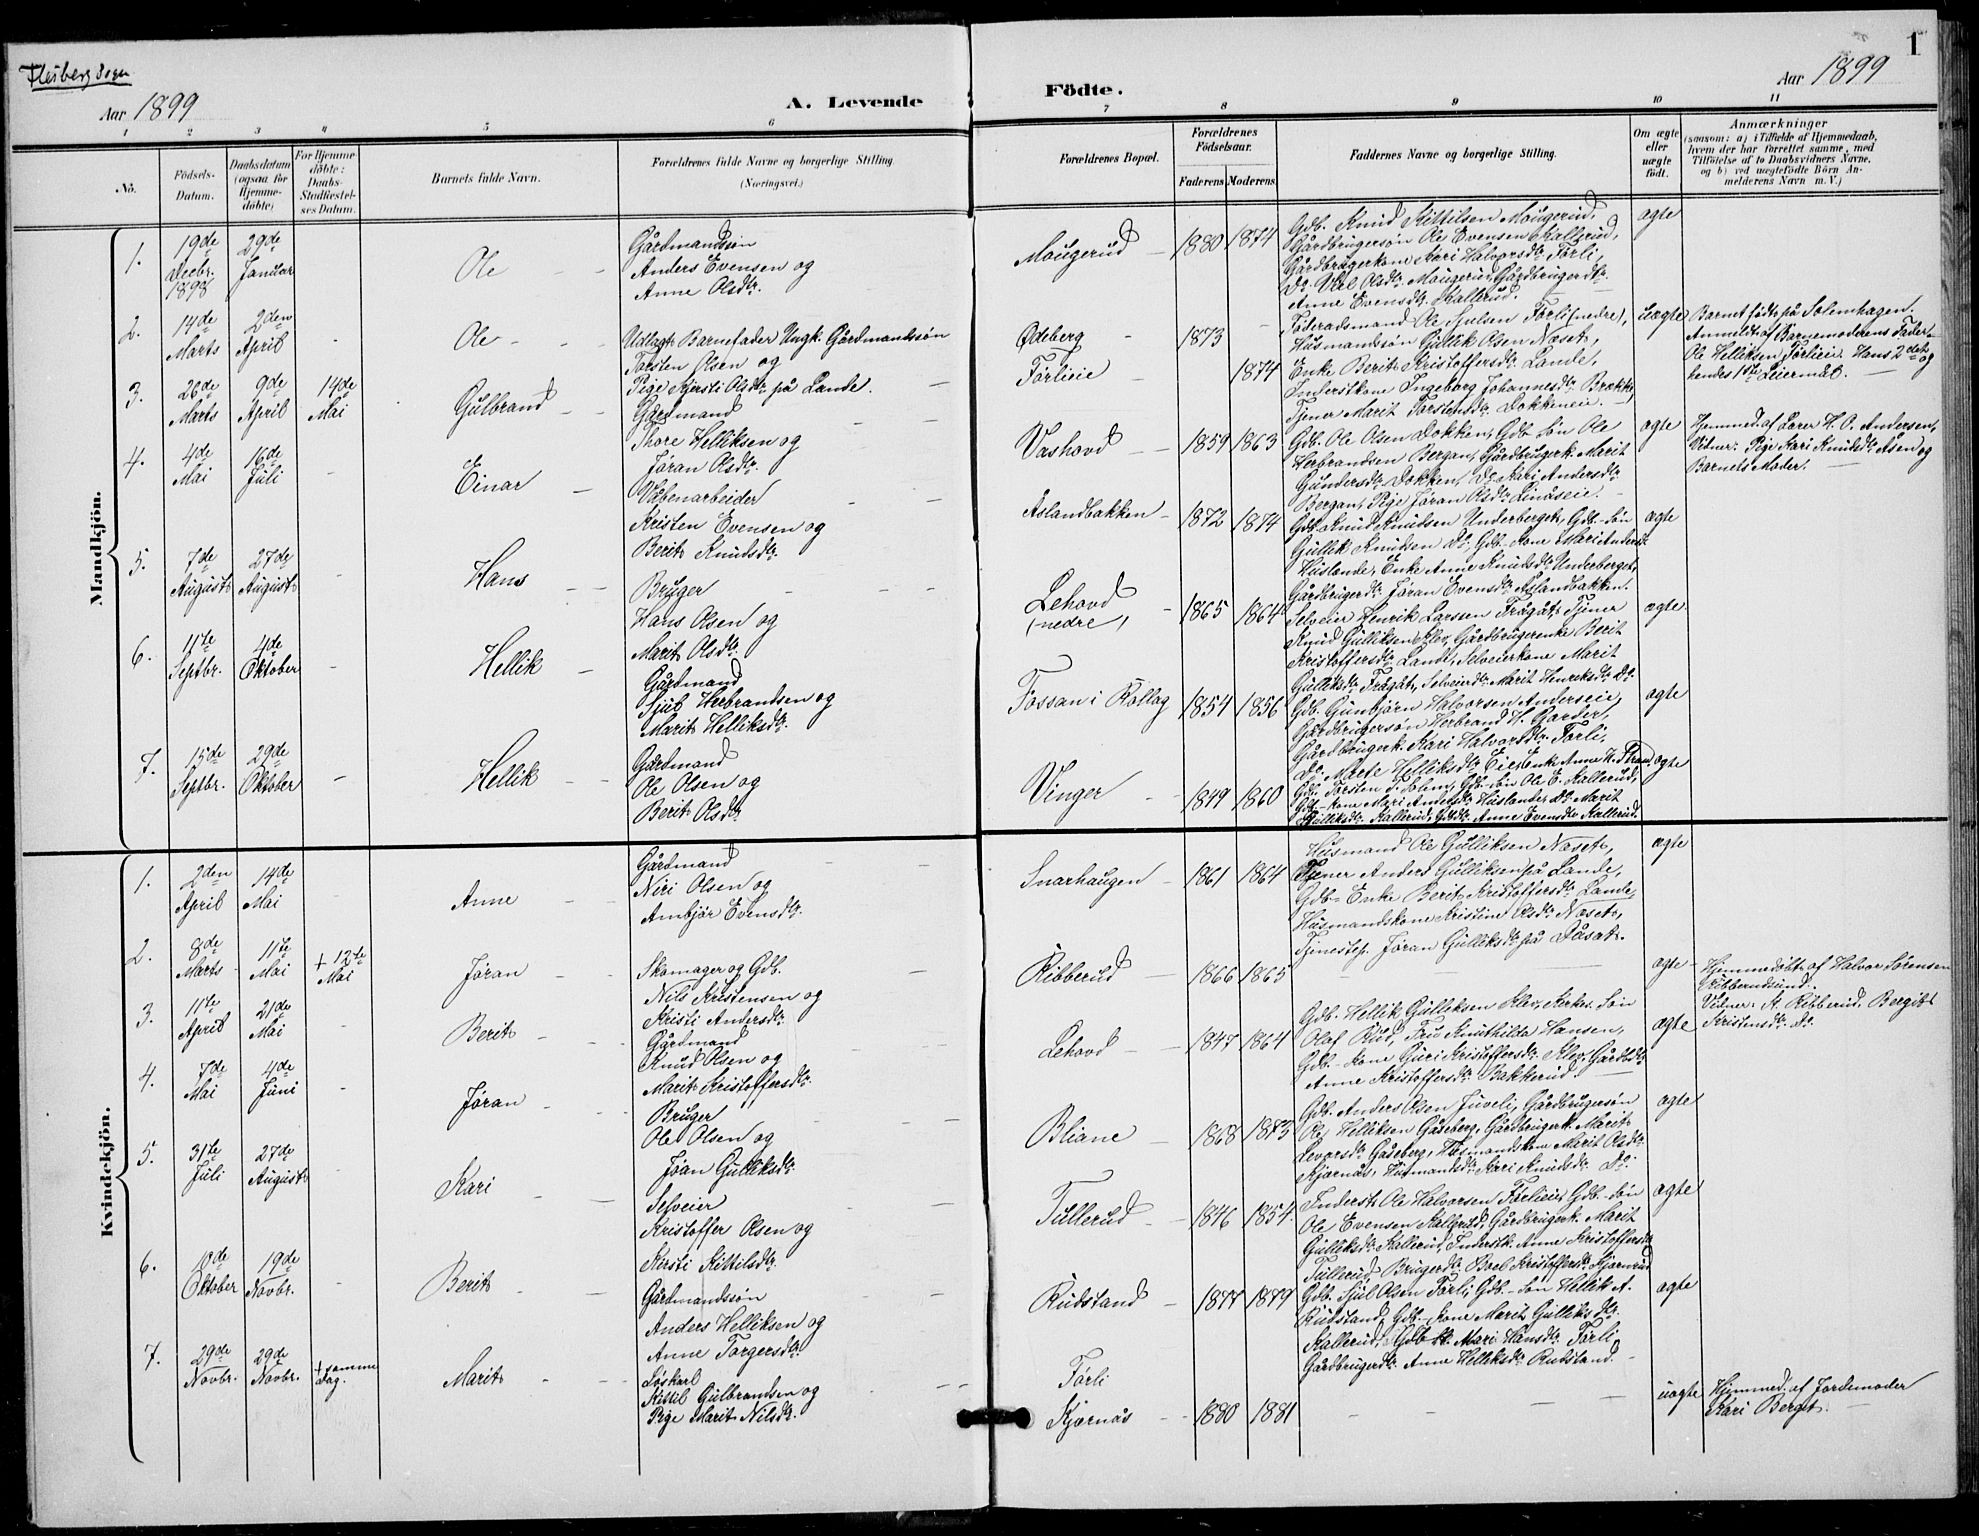 Flesberg Sogn
Aar 1899
A. Levende
Födte.
Aar 1899
1
1 2 3 4 5 6 7 8 9 10 11
No.
Födsels-
Datum.
Daabsdatum
(ogsaa for
Hjemme-
döbte)
For Hjemme-
döbte:
Daabs-
Stadfæstel-
ses Datum.
Barnets fulde Navn.
Forældrenes fulde Navne og borgerlige Stilling.
(Næringsvei.)
Forældrenes Bopæl.
Forældrenes
Födselsaar.
Faderens. Moderens.
Faddernes Navne og borgerlige Stilling.
Om ægte
eller
uægte
födt.
Anmærkninger
(saasom: a) i Tilfælde af Hjemmedaab,
hvem der har forrettet samme, med
Tilföielse af to Daabsvidners Navne,
og b) ved uægtefödte Börn An-
melderens Navn m. V.)
Mandkjön.
1.
19de
Decbr.
1898
29de
Januar
Ole
Gårdmandssøn
Anders Evensen og
Anne Olsdtr.
Mougerud
1880 1874
Gdb. Knud Kittilsen Mougerud,
Gårdbrugersøn Ole Evensen Kallerud,
Gårdbrugerkone Kari Halvorsdtr. Førli,
Do Olsdtr. Mougerud, Gårdbrugerdtr.
Anne Evensdtr. Kallerud.
ægte
2.
14de
Marts
2den
April
Ole
Udlagt Barnefader Ungk. Gårdmandssøn
Torsten Olsen og
Pige Kjersti Olsdtr. på Lande.
Ødeberg
Førlieie
1873
1874
Føderadsmand Ole Sjulsen Førli (nedre),
Husmandssøn Gullik Olsen Næset,
Enke Berit Kristoffersdtr. Lande,
Inderstkone Ingeborg Johannesdtr. Brække,
Tjener Marit Torstensdtr. Dokkeneie.
Uægte
Barnet født på Solemhagen.
Anmeldt af Barnemoderens Fader
Ole Helliksen Førlieie. Hans 2det og
hendes 1ste Leiermål.
3.
26de
Marts
9de
April
14de
Mai
Gulbrand
Gårdmand
Thore Helliksen og
Jøran Olsdtr.
Vashovd
1859 1863
Gdb. Ole Olsen Dokken, Gdb. søn Ole
Herbrandsen Bergan, Gårdbrugerk. Marit
Gundersdtr. Dokken, Do Kari Andersdtr.
Bergan, Pige Jøran Olsdtr. Linåseie.
ægte
Hjemmed. af Lærer H. O. Andersen,
Vidner: Pige Kari Knudsdtr. Åsen og
Barnets Moder.
4.
4de
Mai
16de
Juli
Einar
Våbenarbeider
Kristen Evensen og
Berit Knudsdtr.
Aslandbakken
1872 1874
Gdb. Knud Knudsen Underberget, Gdb. søn
Gullik Knudsen Do, Gdb. kone Mari Andersdtr.
Huslande, Enke Anne Knudsdtr. Underberget,
Gårdbrugerdtr. Jøran Evensdtr. Aslandbakken.
ægte
5.
7de
August
27de
August
Hans
Bruger
Hans Olsen og
Marit Olsdtr.
Lehovd
(nedre)
1865 1864
Selveier Henrik Larsen Frågåt, Tjener
Knud Gulliksen Klev, Gårdbrugerenke Berit
Kristoffersdtr. Lande, Selveierkone Marit
Gulliksdtr. Frågåt, Selveierdtr. Marit Henriksdtr. Do.
ægte
6.
11te
Septbr.
4de
Oktober
Hellik
Gårdmand
Sjul Herbrandsen og
Marit Helliksdtr.
Fossan i Rollag
1854 1856
Gdb. Gunbjørn Halvorsen Anderseie,
Gårdbrugersøn Herbrand H. Garder,
Gårdbrugerk. Kari Halvorsdtr. Førli,
Do Marte Helliksdtr. Enke Anne H. Strand
ægte
7.
15de
Septbr.
29de
Oktober
Hellik
Gårdmand
Ole Olsen og
Berit Olsdtr.
Vinger
1849 1860
Gdb. Torsten T. Solem, Gdb. søn Ole E. Kallerud,
Gdb. kone Mari Andersdtr. Huslande, Do Marit
Gulliksdtr. Kallerud, Gdbdtr. Anne Evensdtr. Kallerud.
ægte
Kvindekjön.
1.
2den
April
14de
Mai
Anne
Gårdmand
Niri Olsen og
Ambjør Evensdtr.
Snarhaugen
1861 1864
Husmand Ole Gulliksen Næset,
Tjener Anders Gulliksen på Lande,
Gdb. Enke Berit Kristoffersdtr. Lande,
Husmandskone Kristine Olsdtr. Næset,
Tjenestep. Jøran Gulliksdtr. på Påsat.
ægte
2.
8de
Marts
11te
Mai
+ 12te
Mai
Jøran
Skomager og Gdb.
Nils Kristensen og
Kristi Andersdtr.
Ribberud
1866 1865
ægte
Hjemmedøbt af Halvor Sørensen
Ribberudsund.
Vidner: K. Ribberud. Bergit
Kristensdtr. Do.
3.
11te
April
21de
Mai
Berit
Gårdmand
Knud Olsen og
Marit Kristoffersdtr.
Lehovd
1847 1864
Gdb. Hellik Gulliksen Klev, Kirkes. søn
Olaf Rud, Fru Knuthilda Hansen,
Gdb. kone Guri Kristoffersdtr. Klev, Gårdbdtr.
Anne Kristoffersdtr. Bakkerud.
ægte
4.
7de
Mai
4de
Juni
Jøran
Bruger
Ole Olsen og
Jøan Gulliksdtr.
Bliane
1868 1873
Gdb. Anders Olsen Juveli, Gårdbrugersøn
Ole Helliksen Gåseberg, Gårdbrugerk. Marit
Levorsdtr. Gåseberg, Husmandskone Marit Olsdtr.
Kjørnås, Husmandsdtr. Kari Knudsdtr. Do.
ægte
5.
31te
Juli
27de
August
Kari
Selveier
Kristoffer Olsen og
Kirsti Kittilsdtr.
Tullerud
1846 1854
Inderst Ole Halvorsen Førlieie, Gdb. søn
Ole Evensen Kallerud, Gårdbrugerk. Marit
Gulliksdtr. Kallerud, Inderstk. Anne Kristoffersdtr.
Tullerud, Brugerdtr. Boel Kristoffersdtr. Kjørnrud
ægte
6.
10de
Oktober
19de
Novbr.
Berit
Gårdmandssøn
Anders Helliksen og
Anne Torgersdtr.
Rudstand
1877 1879
Gdb. Sjul Olsen Førli, Gdb. søn Hellik A.
Rudstand, Gdb. kone Marit Gulliksdtr.
Kallerud, Gdb. k. Mari Hansdtr. Førli
Gårdbrugerdtr. Anne Helliksdtr. Rudstand.
ægte
7.
29de
Novbr.
29de
Novbr.
+ samme
dag.
Marit
Løskarl
Kittil Gulbrandsen og
Pige Marit Nilsdtr.
Førli
Kjørnås
1880 1881
uægte
Hjemmed. af Jordemoder
Kari Berget.